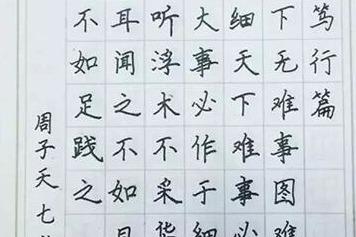 笃行篇
下无难事图难
细天下难事必
大事必作于细
听浮术不采
耳闻之不如目
不如足践之
周子天七